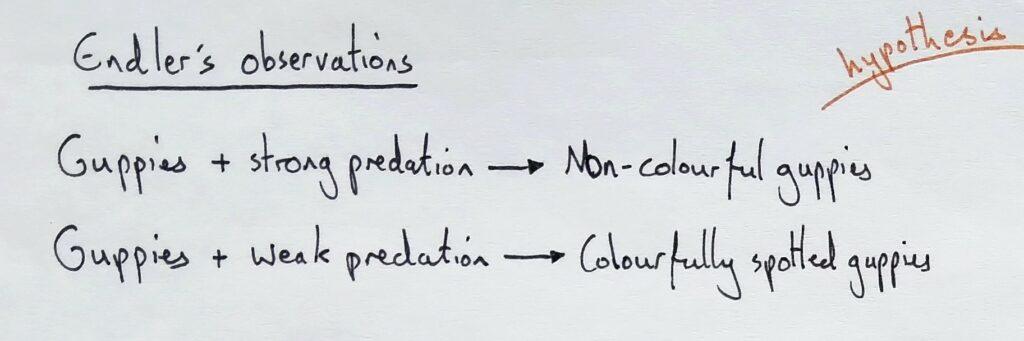 Endler's observations
hypothesis
Guppies + strong predation → Non-colourful guppies
Guppies + weak predation → Colourfully spotted guppies